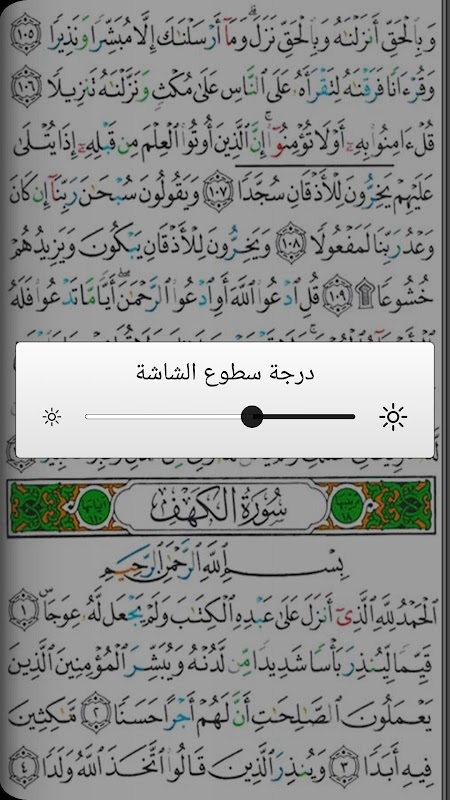 وَبِالْحَقِّ أَنزَلْنَٰهُ وَبِالْحَقِّ نَزَلَ ۗ وَمَآ أَرْسَلْنَٰكَ إِلَّا مُبَشِّرًا وَنَذِيرًا ١٠٥
وَقُرْءَانًا فَرَقْنَٰهُ لِتَقْرَأَهُۥ عَلَى النَّاسِ عَلَىٰ مُكْثٍ وَنَزَّلْنَٰهُ تَنزِيلًا ١٠٦
قُلْ ءَامِنُوا۟ بِهِۦٓ أَوْ لَا تُؤْمِنُوٓا۟ ۚ إِنَّ الَّذِينَ أُوتُوا۟ الْعِلْمَ مِن قَبْلِهِۦٓ إِذَا يُتْلَىٰ
عَلَيْهِمْ يَخِرُّونَ لِلْأَذْقَانِ سُجَّدًا ١٠٧ وَيَقُولُونَ سُبْحَٰنَ رَبِّنَآ إِن كَانَ
وَعْدُ رَبِّنَا لَمَفْعُولًا ١٠٨ وَيَخِرُّونَ لِلْأَذْقَانِ يَبْكُونَ وَيَزِيدُهُمْ
خُشُوعًا ۩ ١٠٩ قُلِ ادْعُوا۟ اللَّهَ أَوِ ادْعُوا۟ الرَّحْمَٰنَ ۖ أَيًّا مَّا تَدْعُوا۟ فَلَهُ
درجة سطوع الشاشة
سُورَةُ الْكَهْفِ
بِسْمِ اللَّهِ الرَّحْمَٰنِ الرَّحِيمِ
الْحَمْدُ لِلَّهِ الَّذِىٓ أَنزَلَ عَلَىٰ عَبْدِهِ الْكِتَٰبَ وَلَمْ يَجْعَل لَّهُۥ عِوَجَا ۜ ١
قَيِّمًا لِّيُنذِرَ بَأْسًا شَدِيدًا مِّن لَّدُنْهُ وَيُبَشِّرَ الْمُؤْمِنِينَ الَّذِينَ
يَعْمَلُونَ الصَّٰلِحَٰتِ أَنَّ لَهُمْ أَجْرًا حَسَنًا ٢ مَّٰكِثِينَ
فِيهِ أَبَدًا ٣ وَيُنذِرَ الَّذِينَ قَالُوا۟ اتَّخَذَ اللَّهُ وَلَدًا ٤